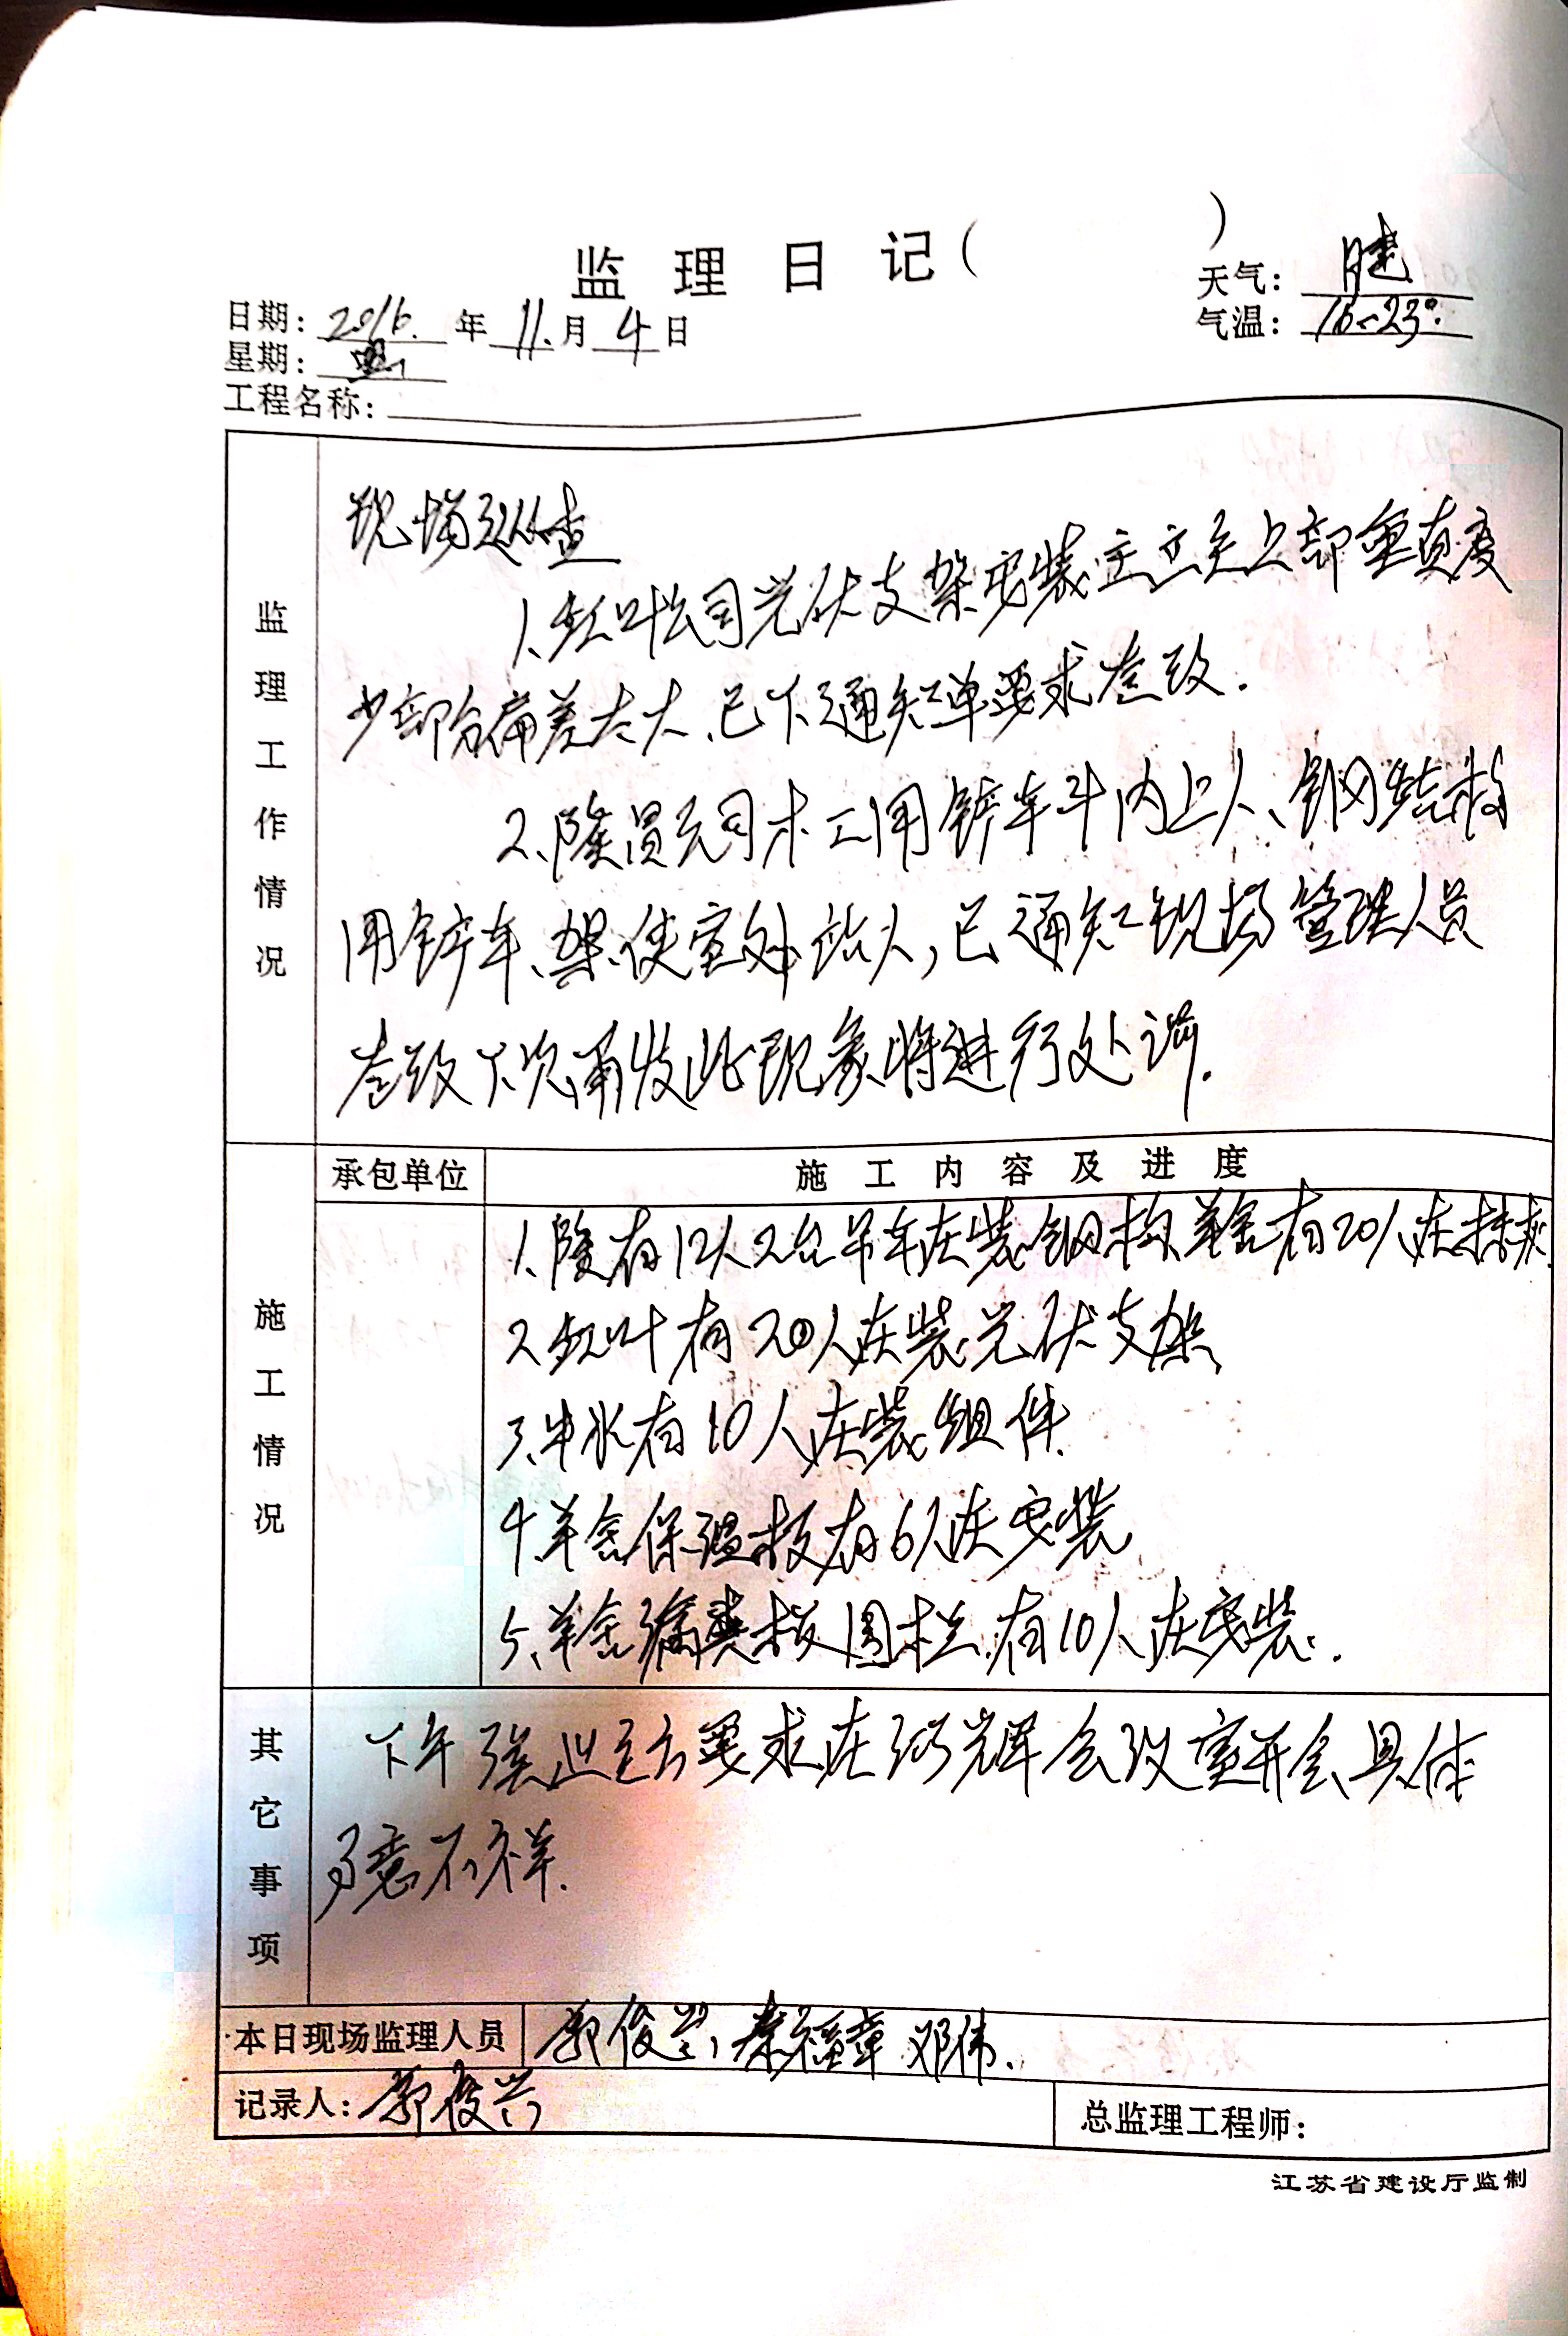 监理日记（ ）
天气：晴
日期：2016.年11.月4日
气温：16-23°.
星期：
工程名称：
监理工作情况
现场巡查
1、红叶公司光伏支架安装立至上部垂直度
少部份偏差太大、已下通知单要求整改.
2、隆昌公司木工用铲车斗内上人、钢结构
用铲车、架使室外站人,已通知现场管理人员
整改下次再发此现象将进行处罚.
施工情况
承包单位 施工内容及进度
1、隆有12人2台吊车在装钢构、羊舍有20人在抹灰
2红叶有20人在装光伏支架
3.中水有10人在装组件
4羊舍保温板有6人在安装
5、羊舍漏粪板围栏有10人在安装.
其它事项
下午强世主六要求在辉会议室开会具体
意不祥.
本日现场监理人员 郭俊兴 秦福章 邓伟.
记录人：郭俊兴 总监理工程师：
江苏省建设厅监制